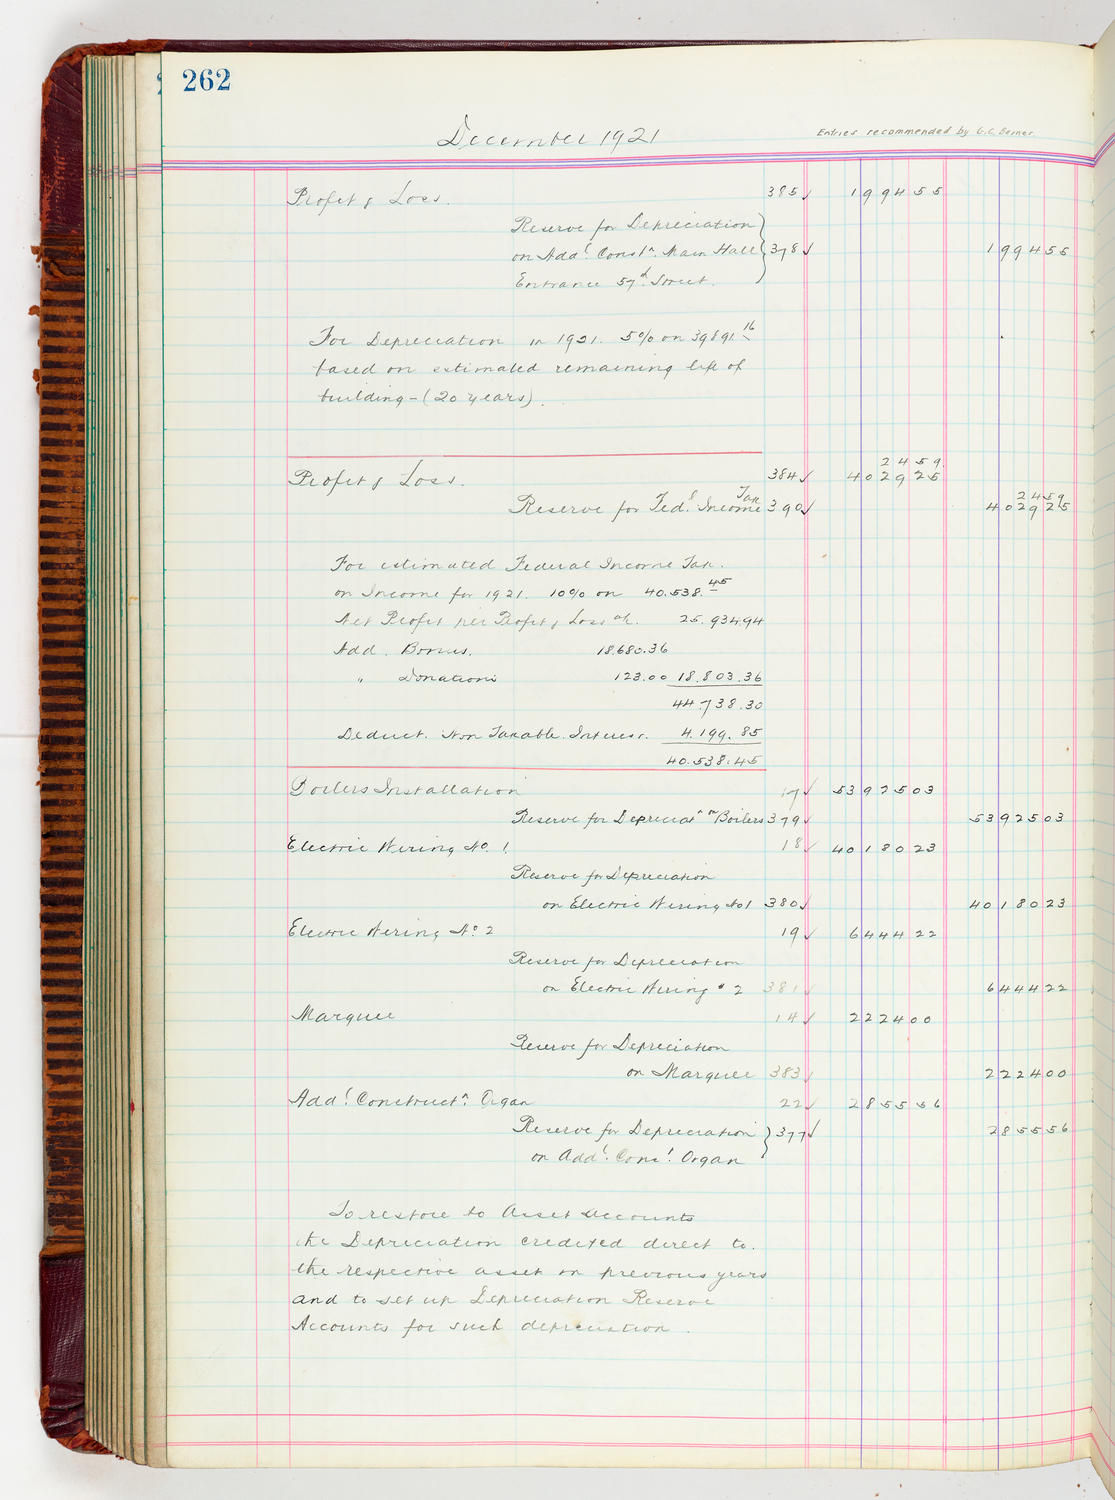 262
December 1921
Entries recommended by G.C. Berner
Profit & Loss. 385 ✓ 1994 55
Reserve for Depreciation
on Addl. Constn. Main Hall 378 ✓ 1994 55
Entrance 57th Street.
For Depreciation in 1921. 5% on 39891.16
based on estimated remaining life of
building - (20 years).
2459
Profit & Loss. 384 ✓ 4029 25
Tax 2459
Reserve for Fedl. Income 390 ✓ 4029 25
For estimated Federal Income Tax.
on Income for 1921. 10% on 40.538.45
Net Profit per Profit & Loss a/c. 25.934.94
Add. Bonus. 18.680.36
" Donations 123.00 18.803.36
44.738.30
Deduct. Non Taxable Interest. 4.199.85
40.538.45
Boilers Installation 17 ✓ 53925 03
Reserve for Depreciatn on Boilers 379 ✓ 53925 03
Electric Wiring No. 1. 18 ✓ 40180 23
Reserve for Depreciation
on Electric Wiring No 1 380 ✓ 40180 23
Electric Wiring No. 2 19 ✓ 6444 22
Reserve for Depreciation
on Electric Wiring # 2 381 ✓ 6444 22
Marquee 14 ✓ 2224 00
Reserve for Depreciation
on Marquee 383 ✓ 2224 00
Addl. Constructn. Organ 22 ✓ 2855 56
Reserve for Depreciation 377 ✓ 2855 56
on Addl. Const. Organ
To restore to Asset Accounts
the Depreciation credited direct to.
the respective asset in previous years
and to set up Depreciation Reserve
Accounts for such depreciation.